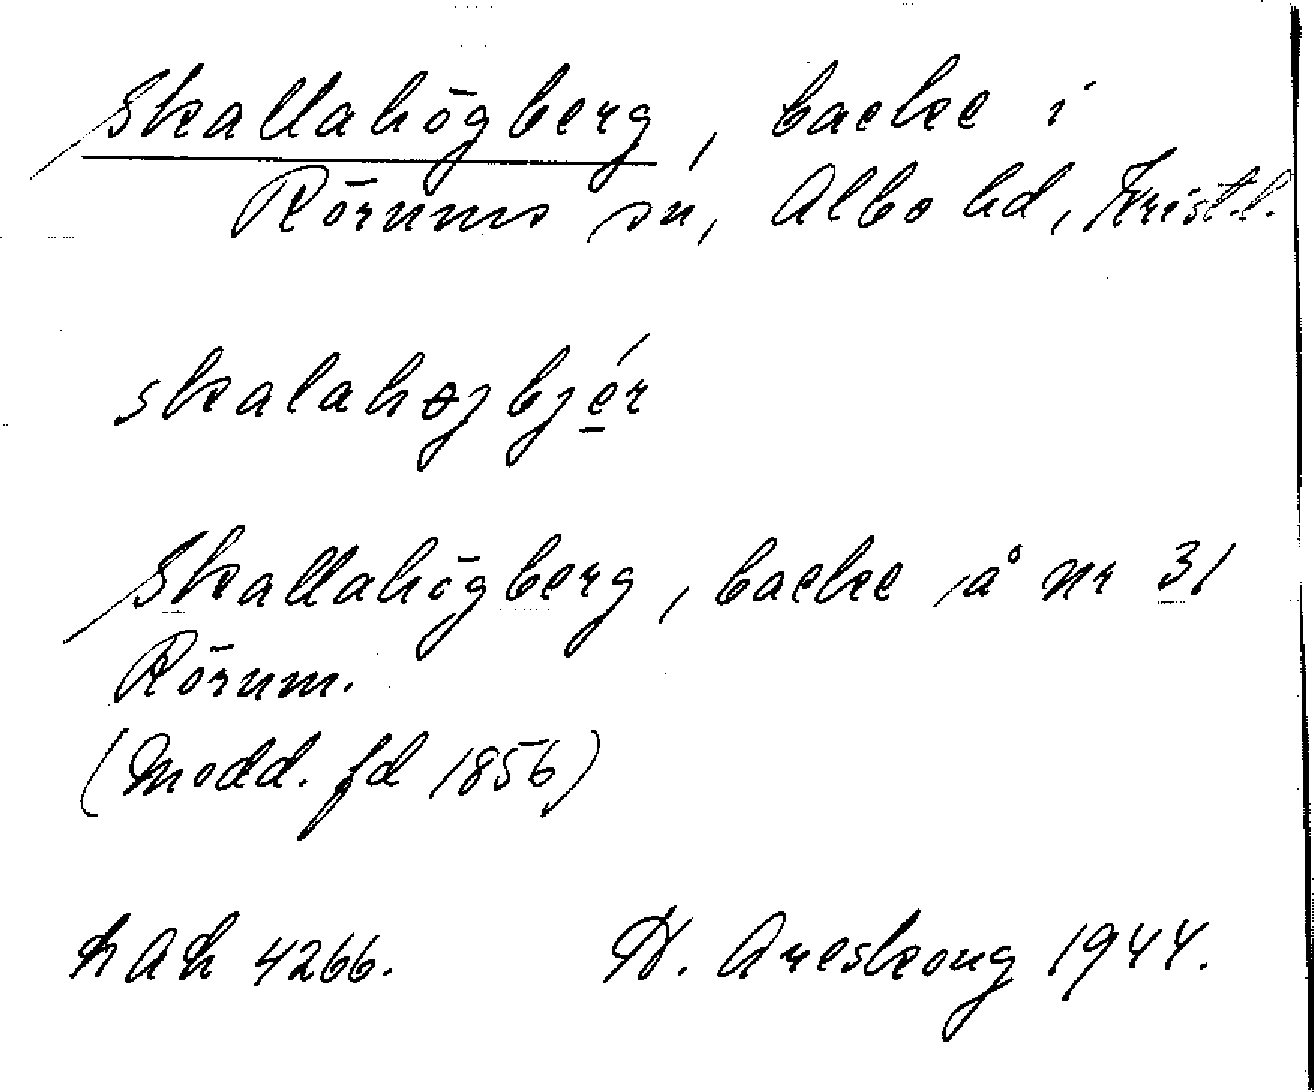 Skallahögberg, backe i
Rörums sn, Albo hd, Kristl.
skalahøjbjér
Skallahögberg, backe å nr 31
Rörum.
(Medd. fd 1856)
LAL 4266. H. Areskoug 1944.